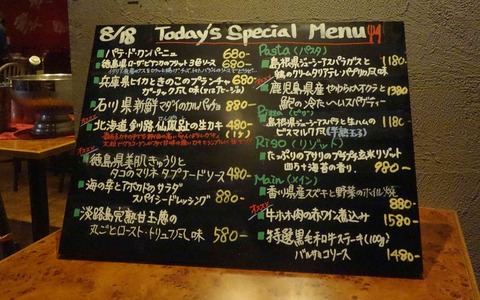 8/18 Today's Special Menu
パテ・ド・カンパーニュ 680-
徳島県
3種ソース 680-
兵庫県ヒイカときのこのブランチャ 680-
ガーリック風味
石川県新鮮マダイのカルパッチョ 880-
オススメ
北海道、釧路、仙鳳趾の生カキ 480-
(1ヶ)
徳島県美肌きゅうりと
タコのマリネ タプナードソース 480-
海の幸とアボカドのサラダ
スパイシードレッシング 880-
淡路島完熟甘玉葱の
丸ごとロースト・トリュフ風味 580-
Pasta (パスタ)
島根県ジューシーアスパラガスと
鶏のクリームタリアテレ パプリカ風味 1180-
鹿児島県産やわらかオクラと
鮑の冷たいペペロスパゲティー 1380-
島根県ジューシーアスパラと生ハムの
ビスマルク風(半熟玉子) 1180-
(リゾット)
たっぷりのアサリのプチプチ玄米リゾット
四万十海苔の香り 980-
Main (メイン)
香川県産スズキと野菜のホイル焼 880-
オススメ
牛ホホ肉の赤ワイン煮込み 1580-
特選黒毛和牛ステーキ(100g)
バルサミコソース 1480-